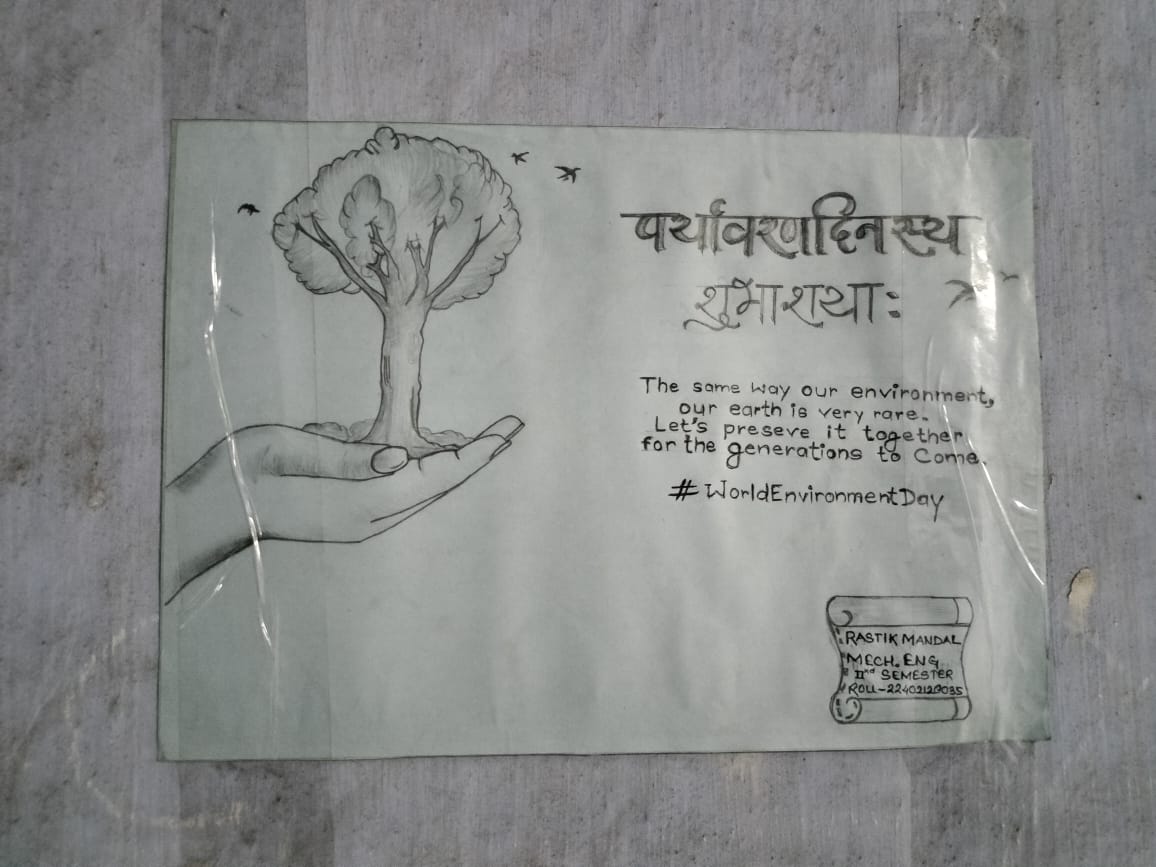 पर्यावरणदिनस्य
शुभाशयाः
The same way our environment,
our earth is very rare.
Let's preseve it together
for the generations to Come.
#WorldEnvironmentDay
RASTIK MANDAL
MECH. ENG
IInd SEMESTER